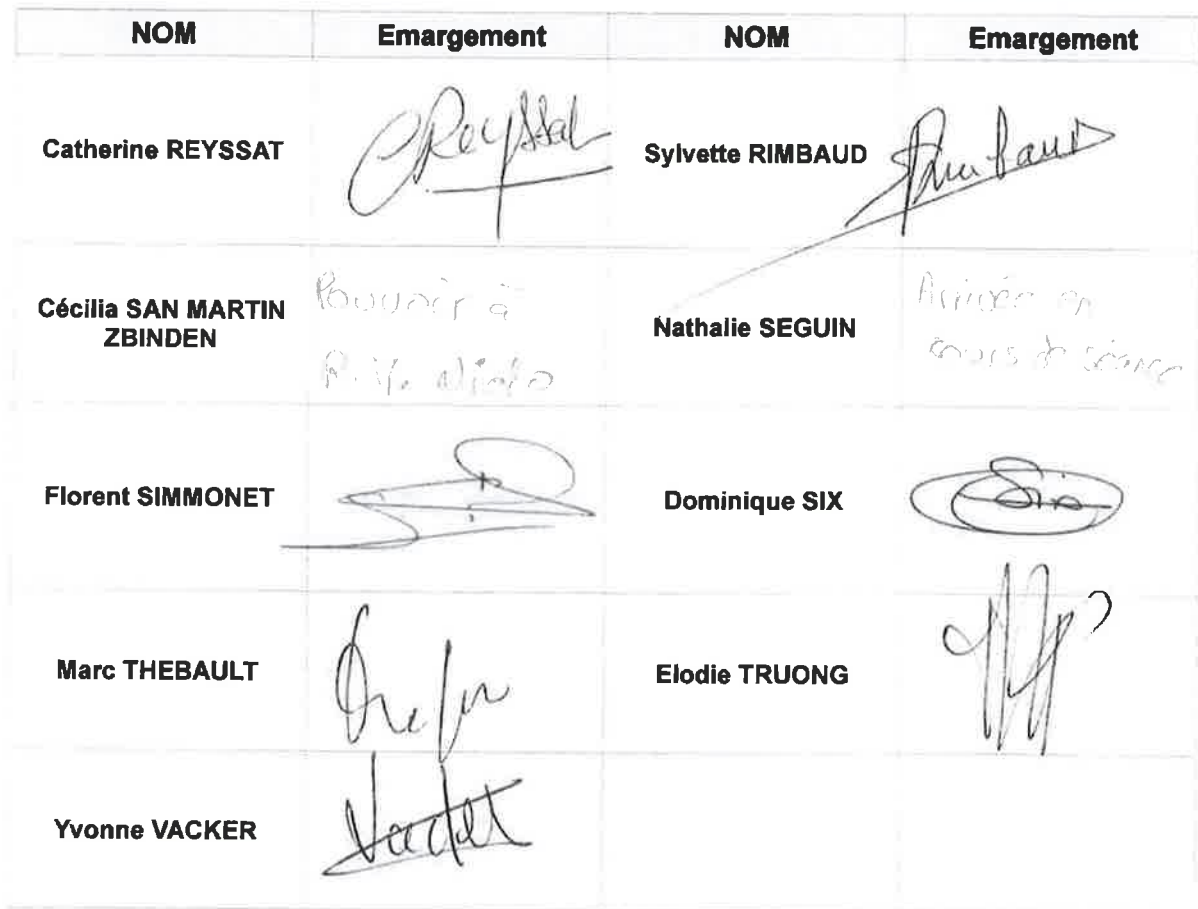 NOM Emargement NOM Emargement
Catherine REYSSAT CReyssat Sylvette RIMBAUD SRimbaud
Cécilia SAN MARTIN
ZBINDEN
Pouvoir à
Nathalie SEGUIN
Arrivée en
cours de séance
Florent SIMMONET Dominique SIX Six
Marc THEBAULT Elodie TRUONG
Yvonne VACKER Vacker